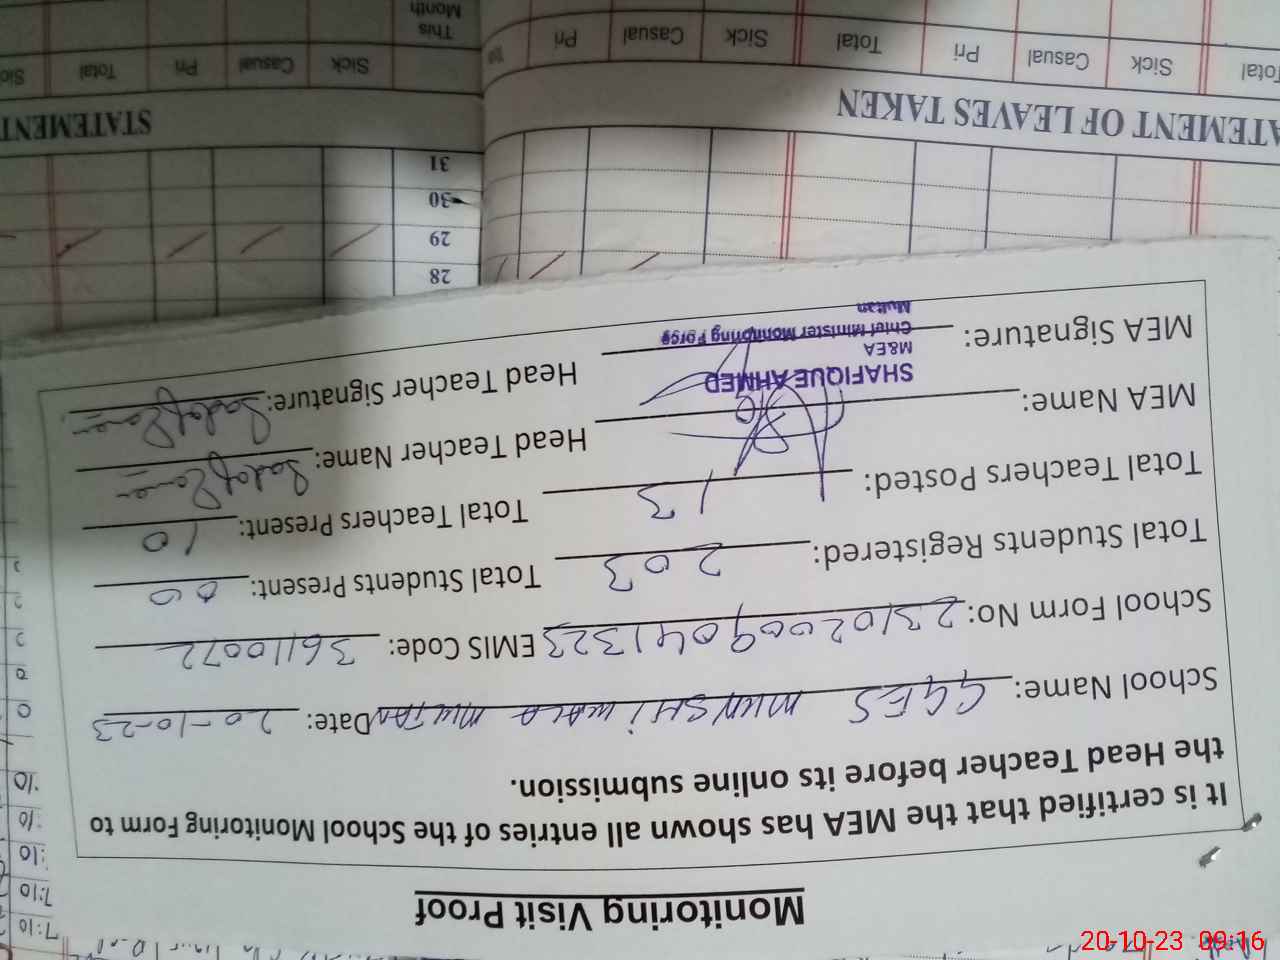 Monitoring Visit Proof
It is certified that the MEA has shown all entries of the School Monitoring Form to
the Head Teacher before its online submission.
School Name: GGES MUNSHI WALA MULTAN Date: 20-10-23
School Form No: 23102009041323 EMIS Code: 36110072
Total Students Registered: 203 Total Students Present: 00
Total Teachers Posted: 13 Total Teachers Present: 10
MEA Name: Head Teacher Name:
MEA Signature: Head Teacher Signature:
SHAFIQUE AHMED
M&EA
Chief Minister Monitoring Force
Multan
28
29
30
31
STATEMENT
ATEMENT OF LEAVES TAKEN
Total Sick Casual Pri Total Sick Casual Pri
Sick Casual Pri Total
This
Month
7:10
7:10
:10
:10
:10
20-10-23 09:16